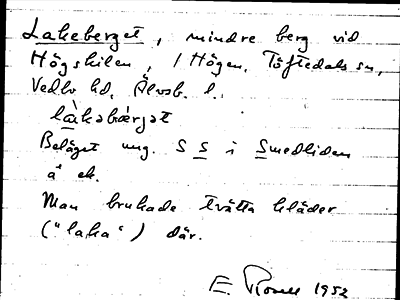 Lakeberget, mindre berg vid
Högskilen, i Högen, Töftedals sn,
Vedbo hd, Älvsb. l.
làkəbærjət
Beläget ung. S S i Smedliden
å ek.
Man brukade tvätta kläder
("laka") där.
E. 1952